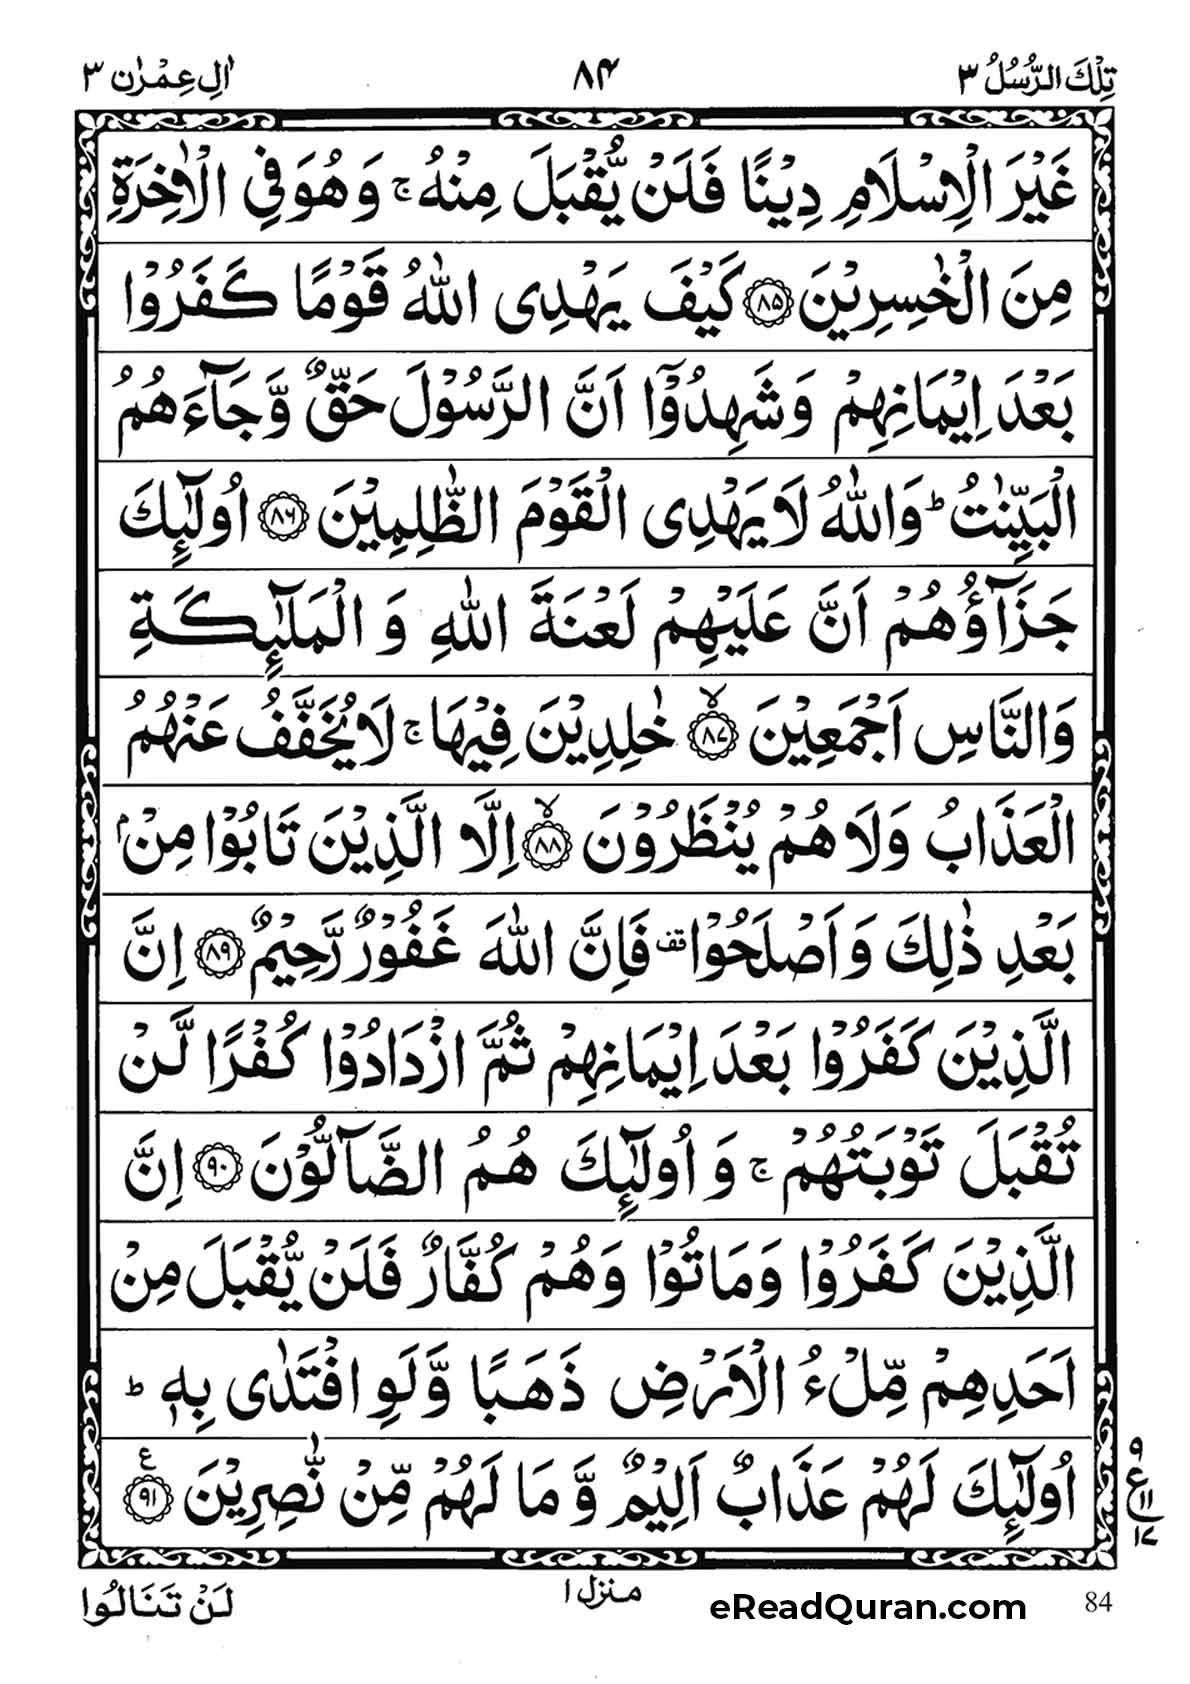 تِلْكَ الرُّسُلُ ٣
٨٤
اٰلِ عِمْرٰن ٣
غَيْرَ الْاِسْلَامِ دِيْنًا فَلَنْ يُّقْبَلَ مِنْهُ ۚ وَهُوَ فِي الْاٰخِرَةِ
مِنَ الْخٰسِرِيْنَ ﴿٨٥﴾ كَيْفَ يَهْدِى اللّٰهُ قَوْمًا كَفَرُوْا
بَعْدَ اِيْمَانِهِمْ وَشَهِدُوْٓا اَنَّ الرَّسُوْلَ حَقٌّ وَّجَآءَهُمُ
الْبَيِّنٰتُ ؕ وَاللّٰهُ لَا يَهْدِى الْقَوْمَ الظّٰلِمِيْنَ ﴿٨٦﴾ اُولٰٓئِكَ
جَزَآؤُهُمْ اَنَّ عَلَيْهِمْ لَعْنَةَ اللّٰهِ وَ الْمَلٰٓئِكَةِ
وَالنَّاسِ اَجْمَعِيْنَ ﴿٨٧﴾ۙ خٰلِدِيْنَ فِيْهَا ۚ لَا يُخَفَّفُ عَنْهُمُ
الْعَذَابُ وَلَا هُمْ يُنْظَرُوْنَ ﴿٨٨﴾ۙ اِلَّا الَّذِيْنَ تَابُوْا مِنْۢ
بَعْدِ ذٰلِكَ وَاَصْلَحُوْا قف فَاِنَّ اللّٰهَ غَفُوْرٌ رَّحِيْمٌ ﴿٨٩﴾ اِنَّ
الَّذِيْنَ كَفَرُوْا بَعْدَ اِيْمَانِهِمْ ثُمَّ ازْدَادُوْا كُفْرًا لَّنْ
تُقْبَلَ تَوْبَتُهُمْ ۚ وَ اُولٰٓئِكَ هُمُ الضَّآلُّوْنَ ﴿٩٠﴾ اِنَّ
الَّذِيْنَ كَفَرُوْا وَمَاتُوْا وَهُمْ كُفَّارٌ فَلَنْ يُّقْبَلَ مِنْ
اَحَدِهِمْ مِّلْءُ الْاَرْضِ ذَهَبًا وَّلَوِ افْتَدٰى بِهٖ ؕ
اُولٰٓئِكَ لَهُمْ عَذَابٌ اَلِيْمٌ وَّ مَا لَهُمْ مِّنْ نّٰصِرِيْنَ ﴿٩١﴾ ع
٩
ع ١١
١٧
لَنْ تَنَالُوا
منزل ١
eReadQuran.com
84